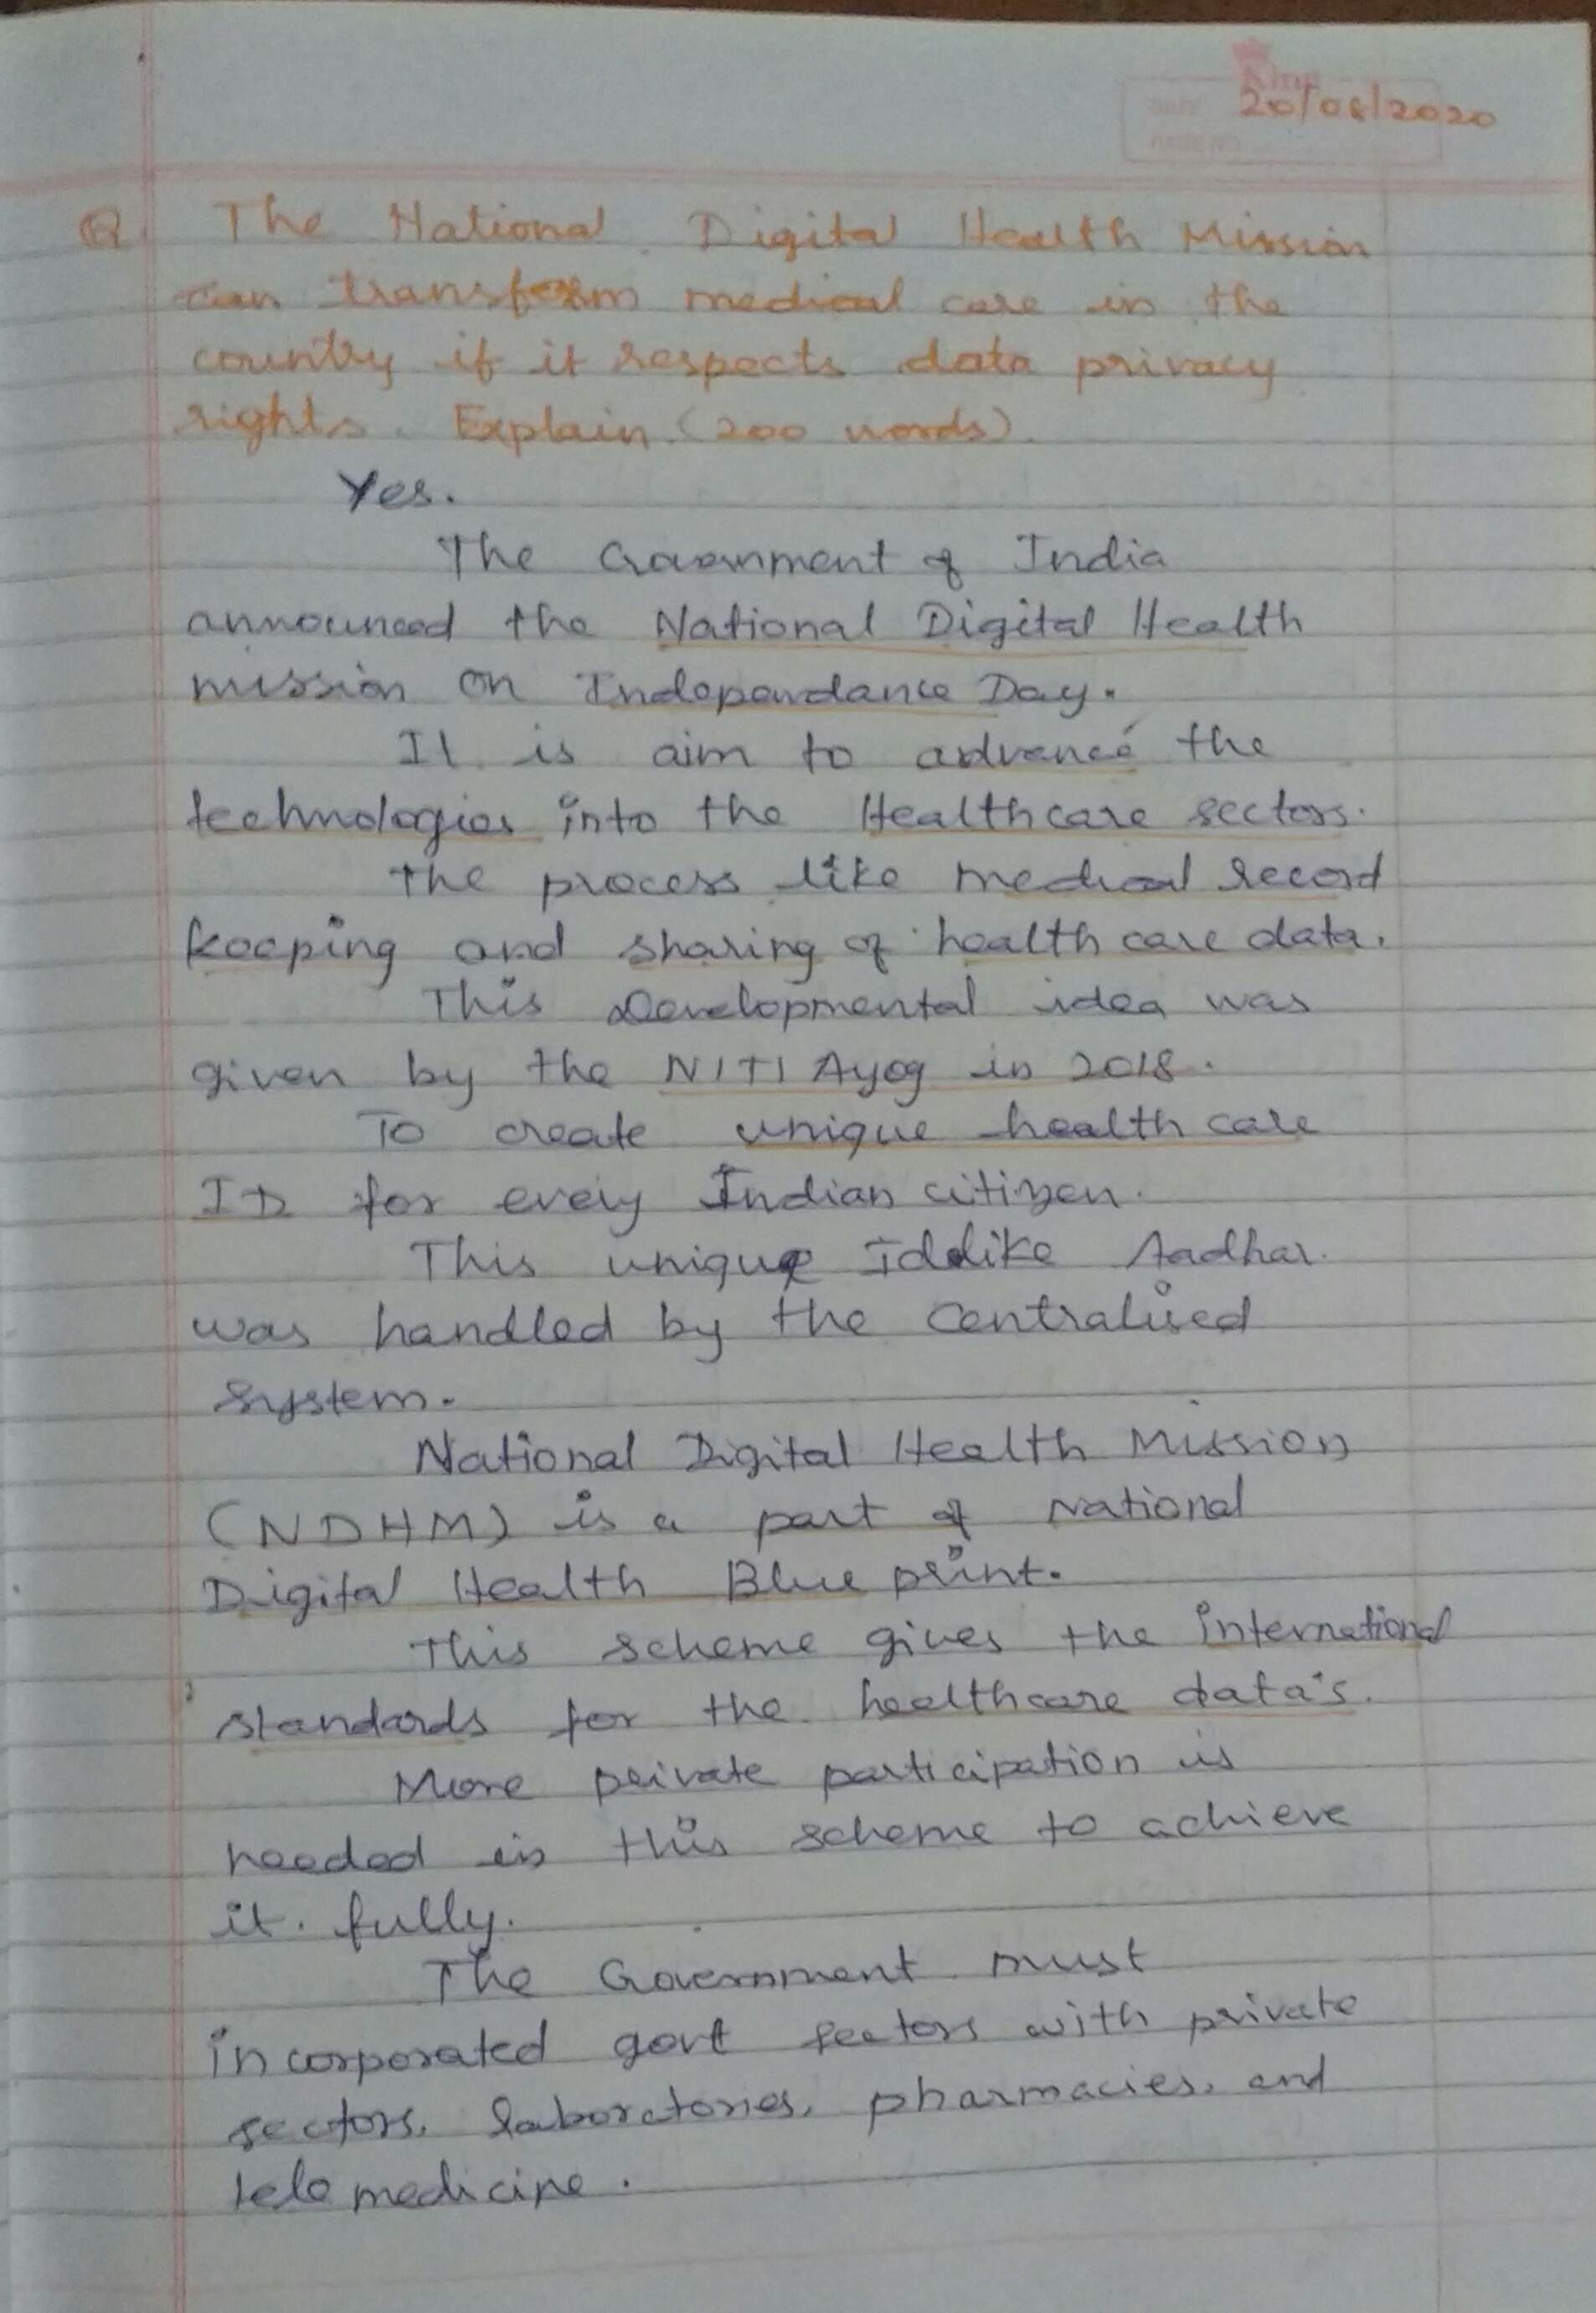 King
20/08/2020
Q. The National Digital Health Mission
can transform medical care in the
country if it respects data privacy
rights. Explain. (200 words).
Yes.
The Government of India
announced the National Digital Health
mission on Independance Day.
It is aim to advance the
technologies into the Healthcare sectors.
The process like medical record
keeping and sharing of health care data.
This Developmental idea was
given by the NITI Ayog in 2018.
To create unique health care
ID for every Indian citizen.
This unique Id like Aadhar
was handled by the Centralised
system.
National Digital Health Mission
(NDHM) is a part of National
Digital Health Blue print.
This scheme gives the international
standards for the healthcare data's.
More private participation is
needed in this scheme to achieve
it. fully.
The Government must
incorporated govt sectors with private
sectors, laboratories, pharmacies, and
tele medicine.